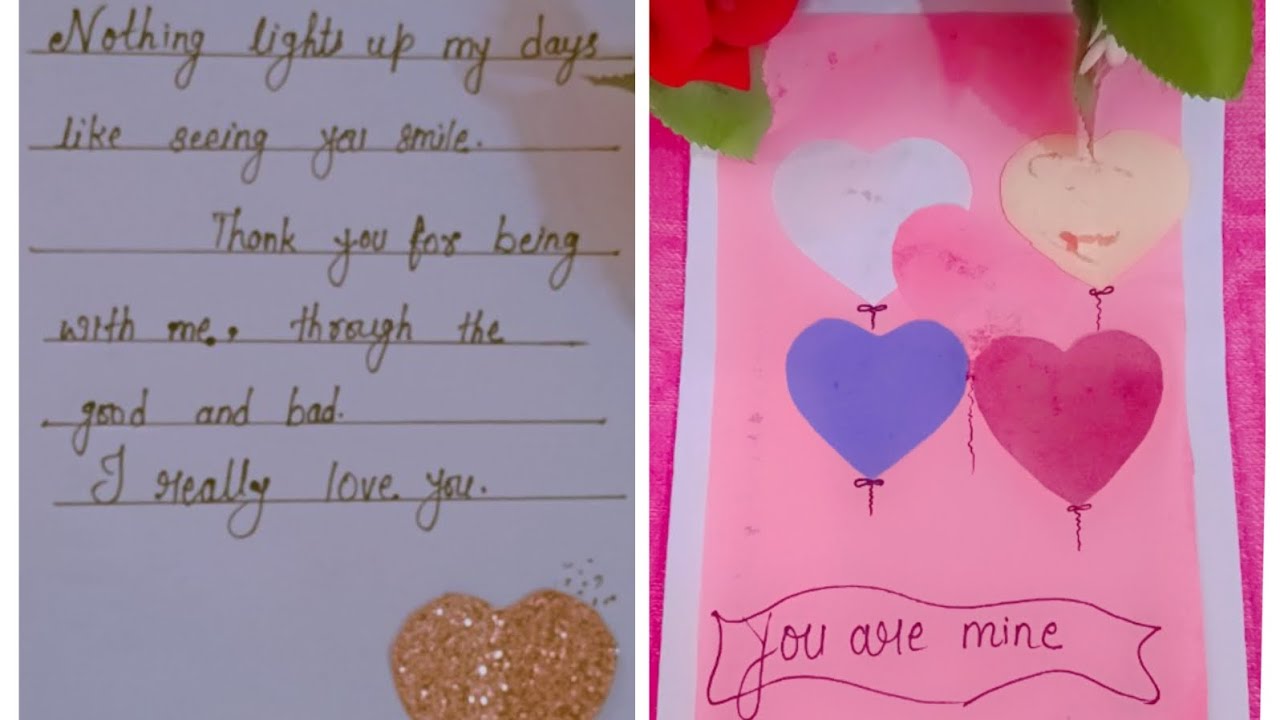 Nothing lights up my days
like seeing you smile.
Thank you for being
with me, through the
good and bad.
I really love you.
You are mine